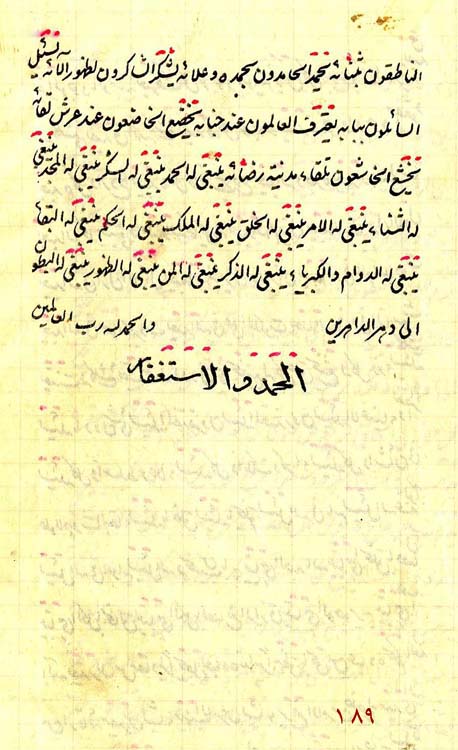 الناطقون بثنائه يحمد الحامدون بحمده وعلانه يشكر الشاكرون لظهور آلائه يسئل
السائلون ببابه يعترف العالمون عند جنابه يخضع الخاضعون عند عرش لقائه
يخشع الخاشعون تلقاء مدينة رضائه ينبغي له الحمد ينبغي له الشكر ينبغي له المجد ينبغي
له الثناء ينبغي له الامر ينبغي له الخلق ينبغي له الملك ينبغي له الحكم ينبغي له البقاء
ينبغي له الدوام والكبرياء ينبغي له الذكر ينبغي له المن ينبغي له الظهور ينبغي له البطون
الى دهر الداهرين والحمد لله رب العالمين
الحمد والاستغفار
١٨٩